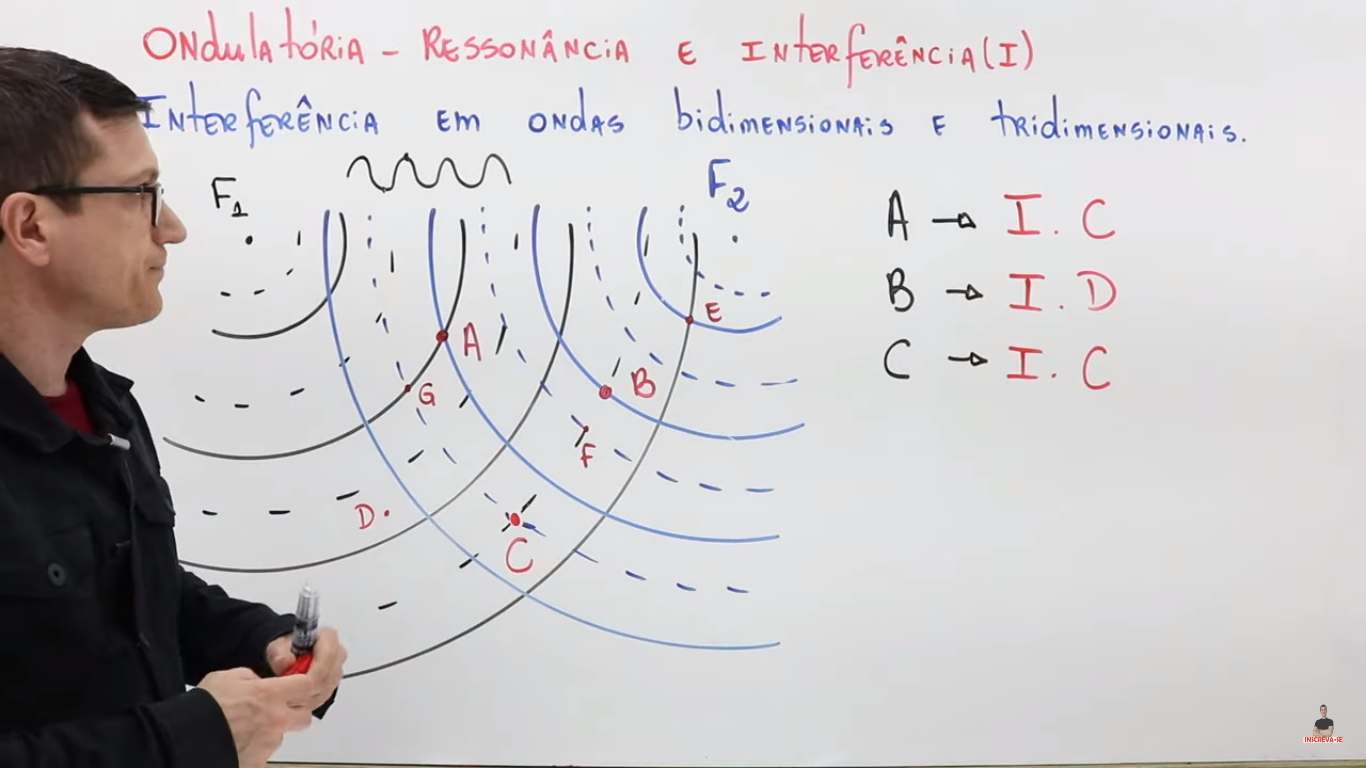 ONdulAtóRiA - RESSONÂNCiA E INtERfERÊNCiA (I)
INtERfERÊNCiA EM ONdAS bidiMENSiONAiS E tRidiMENSiONAiS.
F1
F2
A → I. C
B → I. D
C → I. C
E
A
G
B
F
D
C
INSCREVA-SE